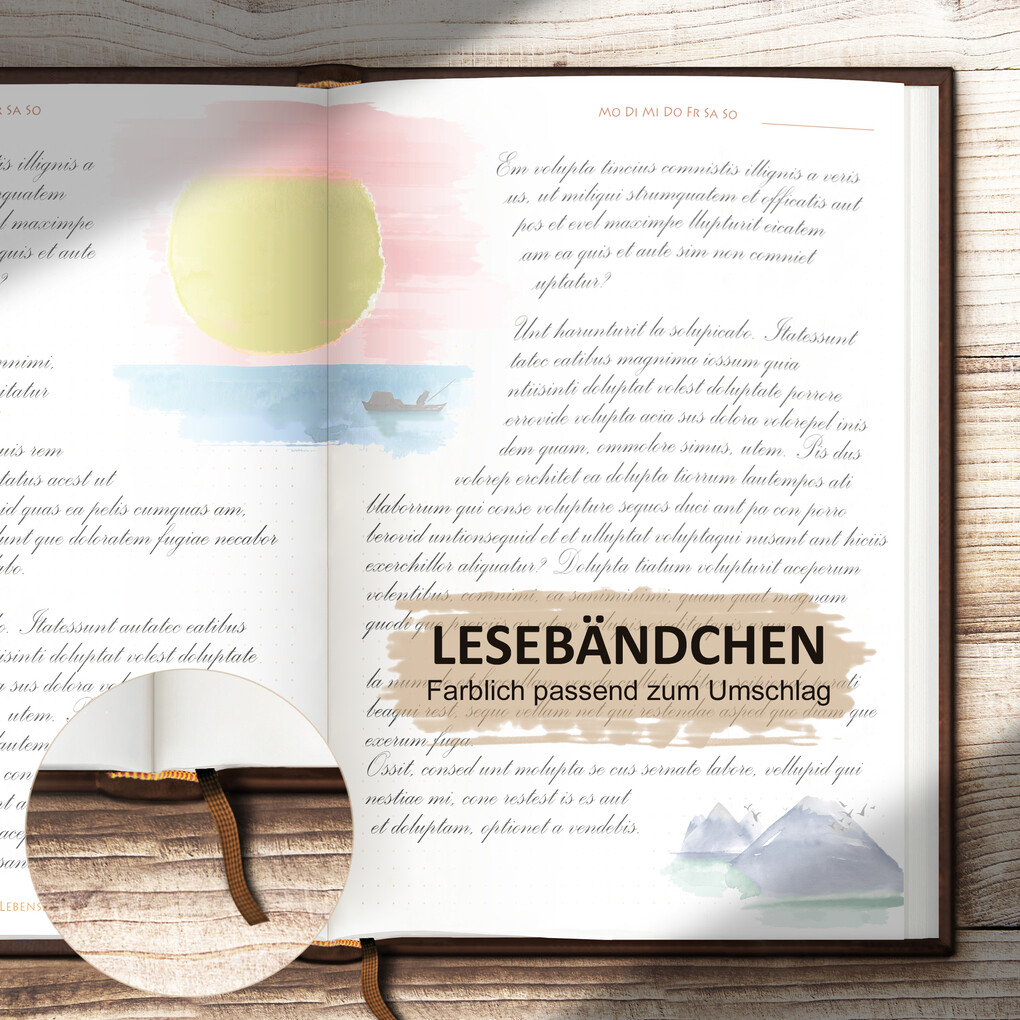 SA SO
illignis a
maximpe
quis et aute
rem
acest ut
id quas ea pelis cumquas am,
que doloratem fugiae necabor
Itatessunt autatec eatibus
doluptat volest doluptate
sus dolora
utem.
con
LEBENS
MO DI MI DO FR SA SO
Em volupta tincius comnistis illignis a veris
us, ut miliqui strumquatem et officatis aut
pos et evel maximpe llupturit eicatem
am ea quis et aute sim non comniet
uptatur?
Unt harunturit la solupicabo. Itatessunt
tatec eatibus magnima iossum quia
ntiisinti doluptat volest doluptate porrore
errovide volupta acia sus dolora volorepel inis
dem quam, ommolore simus, utem. Pis dus
volorep erchitet ea dolupta tiorrum lautempos ati
blaborrum qui conse volupture sequos duci ant pa con porro
berovid untionsequid et et ulluptat voluptaqui nusant ant hiciis
exerchillor aliquatur? Dolupta tiatum volupturit aceperum
volentibus, comnimi, ea saniminimi, quam quat magnam
quodi que
LESEBÄNDCHEN
la
Farblich passend zum Umschlag
beaqui rest, seque vellam net qui restendae asped que diam que
exerum fuga.
Ossit, consed unt molupta se cus sernate labore, vellupid qui
nestiae mi, cone restest is es aut
et doluptam, optionet a vendebis.